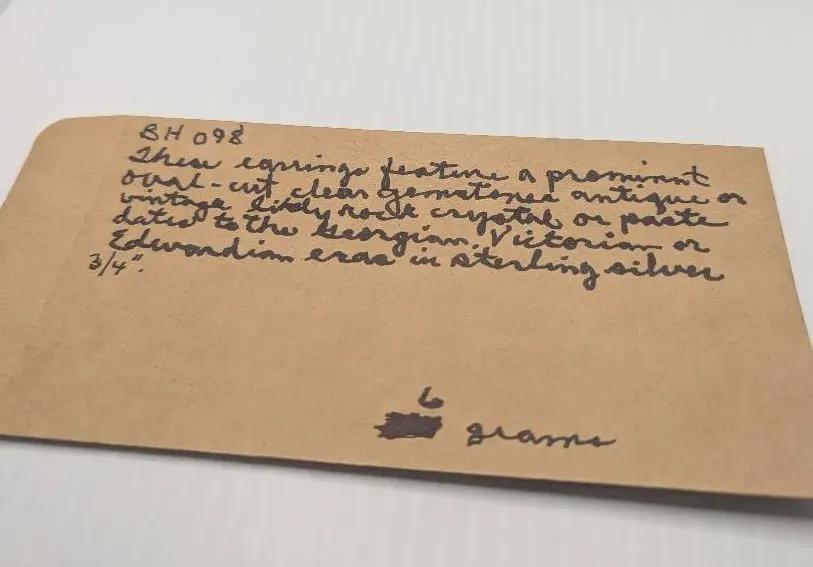 BH 098
These earrings feature a prominent
oval-cut clear gemstones antique or
vintage likely rock crystal or paste
dated to the Georgian, Victorian or
Edwardian eras in sterling silver
3/4".
6
grams